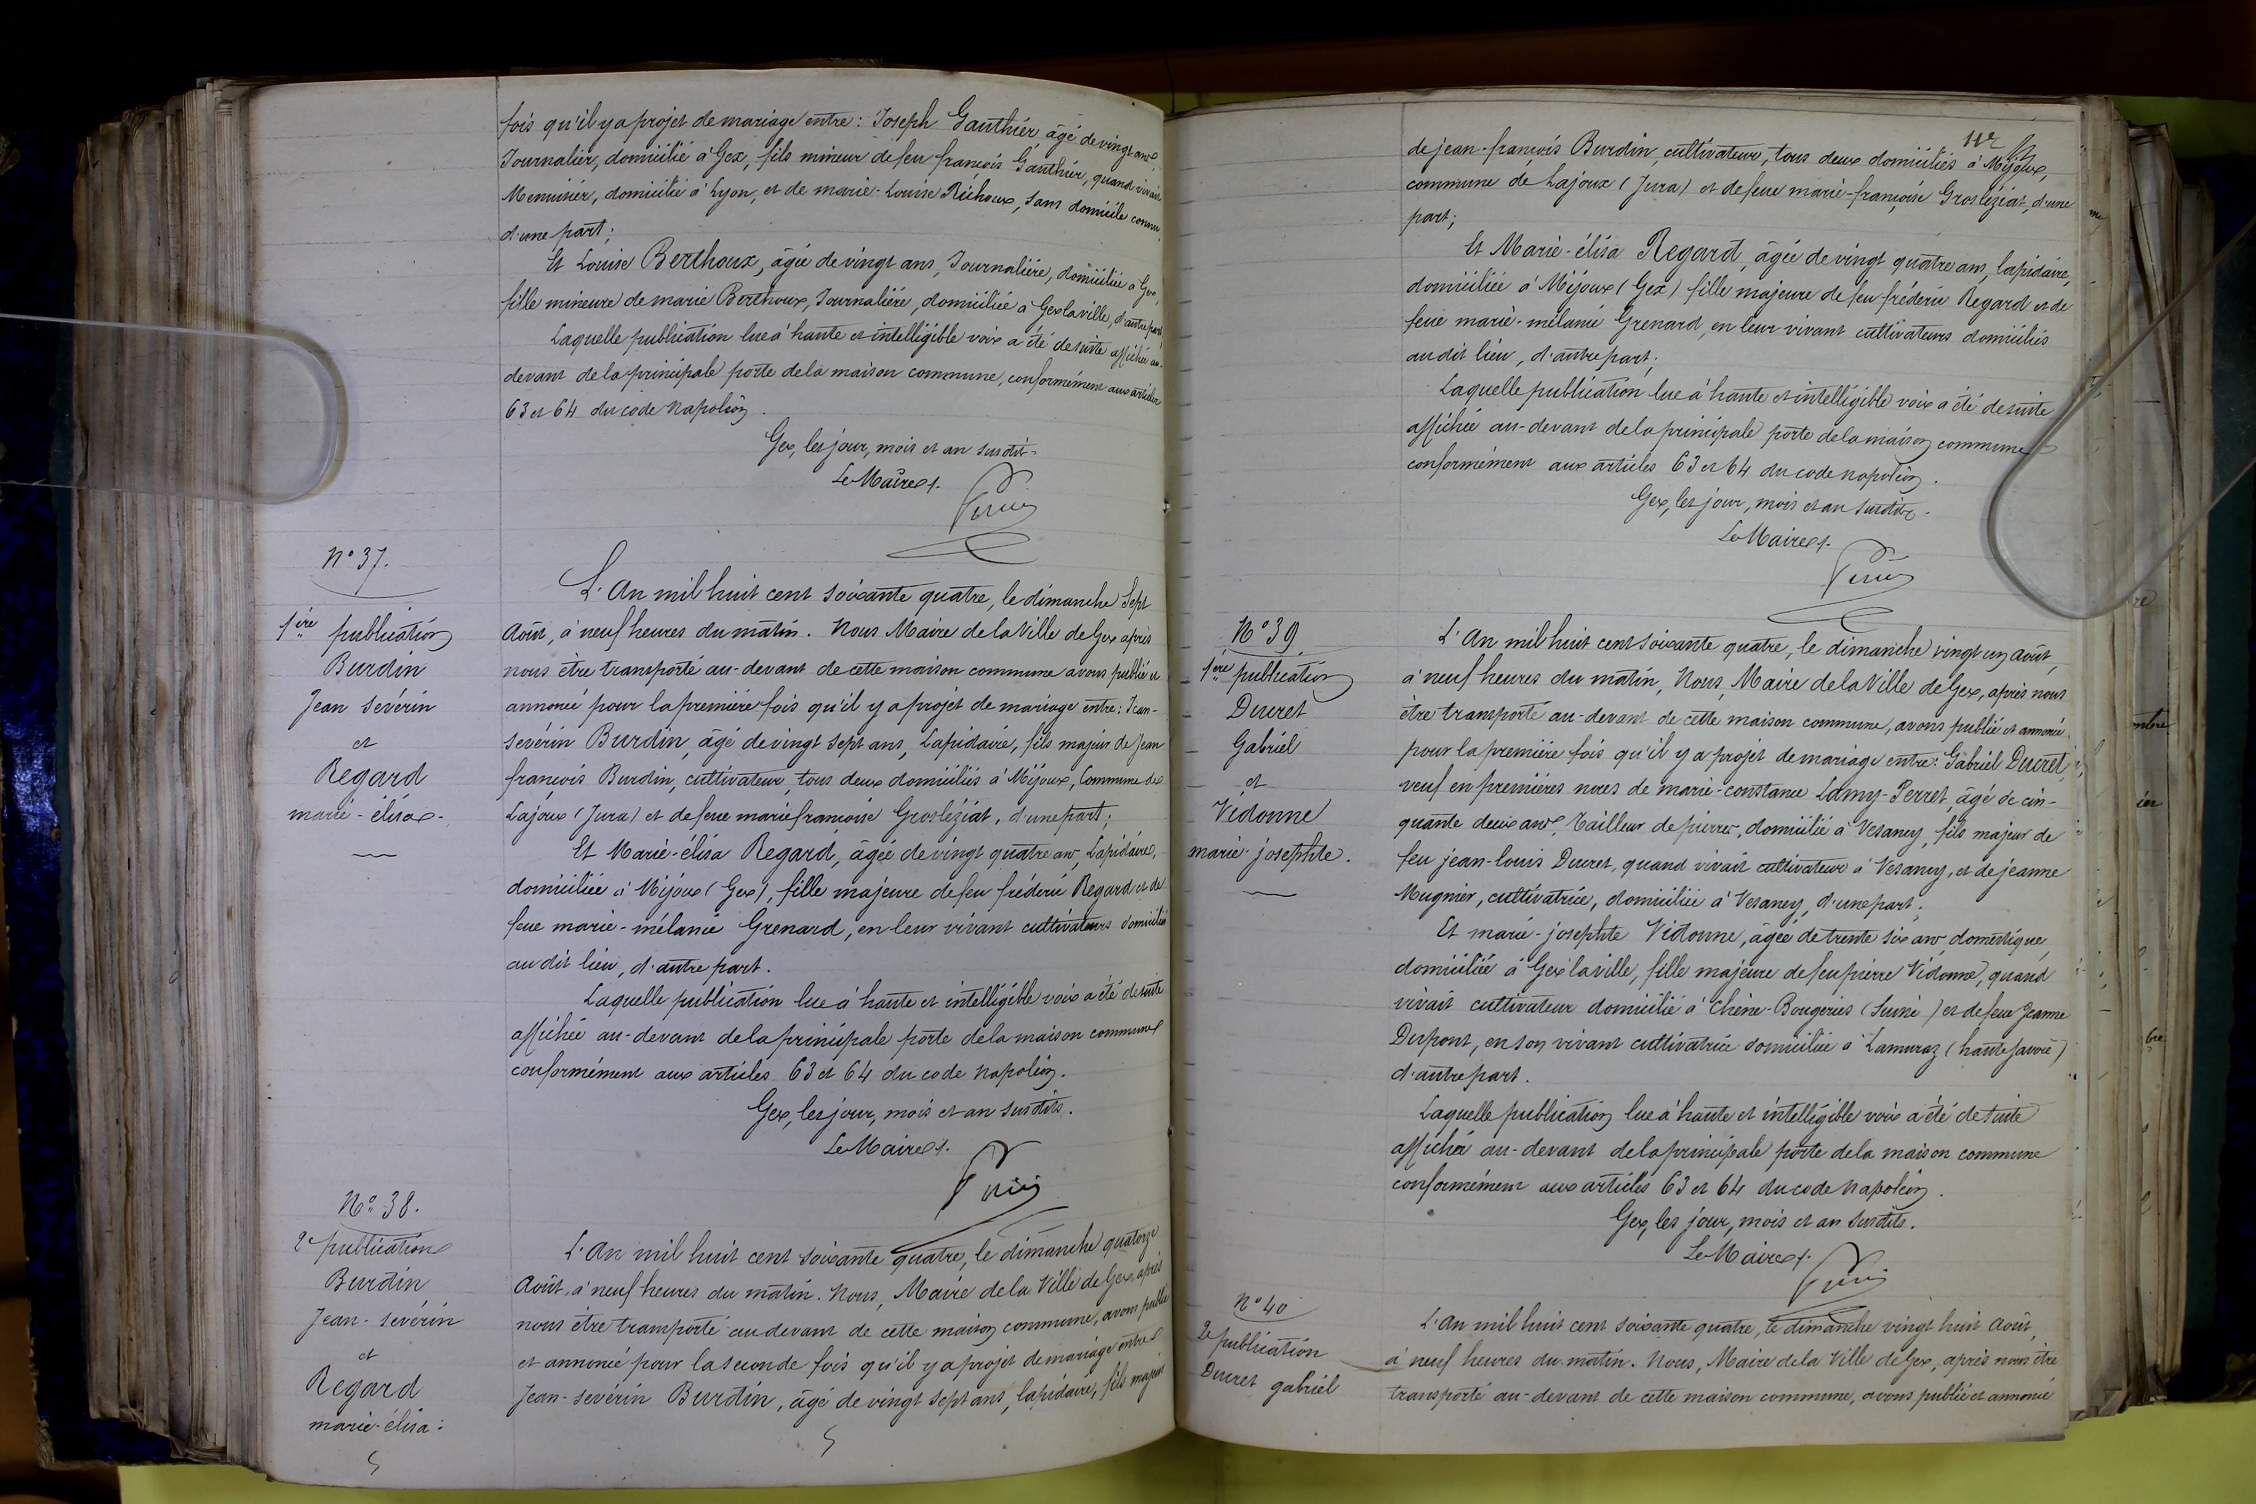 fois qu'il y a projet de mariage entre : Joseph Gauthier, âgé de vingt ans,
Journalier, domicilié à Gex, fils mineur de feu françois Gauthier, quand vivait
Menuisier, domicilié à Lyon, et de marie-Louise Richoux, sans domicile connu,
d'une part;
Et Louise Berthoux, âgée de vingt ans, Journalière, domiciliée à Gex,
fille mineure de marie Berthoux, Journalière, domiciliée à Gex la ville, d'autre part
Laquelle publication lue à haute et intelligible voix a été de suite affichée au-
devant de la principale porte de la maison commune, conformément aux articles
63 et 64 du code Napoléon.
Gex, les jour, mois et an susdit.
Le Maire
N° 37.
1ère publication
Burdin
Jean sévérin
et
Regard
marie-élisa.
L'An mil huit cent soixante quatre, le dimanche Sept
Août, à neuf heures du matin. Nous Maire de la Ville de Gex après
nous être transporté au-devant de cette maison commune avons publié et
annoncé pour la première fois qu'il y a projet de mariage entre : Jean-
sévérin Burdin, âgé de vingt sept ans, Lapidaire, fils majeur de Jean
françois Burdin, cultivateur, tous deux domiciliés à Mijoux, Commune de
Lajoux (Jura) et de feue marie françoise Grosléziat, d'une part;
Et Marie-élisa Regard, âgée de vingt quatre ans, Lapidaire,
domiciliée à Mijoux (Gex), fille majeure de feu fréderic Regard et de
feue marie-mélanie Grenard, en leur vivant cultivateurs domiciliés
au dit lieu, d'autre part.
Laquelle publication lue à haute et intelligible voix a été de suite
affichée au-devant de la principale porte de la maison commune
conformément aux articles 63 et 64 du code Napoléon.
Gex, les jour, mois et an susdits.
Le Maire
N° 38.
2e publication
Burdin
Jean-sévérin
et
Regard
marie-élisa.
L'An mil huit cent soixante quatre, le dimanche quatorze
Août, à neuf heures du matin. Nous, Maire de la Ville de Gex, après
nous être transporté au devant de cette maison commune, avons publié
et annoncé pour la seconde fois qu'il y a projet de mariage entre
Jean-severin Burdin, âgé de vingt sept ans, lapidaire, fils majeur
de jean-françois Burdin, cultivateur, tous deux domiciliés à Mijoux,
commune de Lajoux (Jura) et de feue marie-françoise Grosléziat, d'une
part;
Et Marie-élisa Regard, âgée de vingt quatre ans, lapidaire,
domiciliée à Mijoux (Gex) fille majeure de feu fréderic Regard et de
feue marie-mélanie Grenard, en leur vivant cultivateurs domiciliés
au dit lieu, d'autre part;
Laquelle publication lue à haute et intelligible voix a été de suite
affichée au-devant de la principale porte de la maison commune
conformément aux articles 63 et 64 du code Napoléon.
Gex, les jour, mois et an susdits.
Le Maire
N° 39.
1ère publication
Ducret
Gabriel
et
Vidonne
marie-josephte.
L'An mil huit cent soixante quatre, le dimanche vingt un août,
à neuf heures du matin, Nous, Maire de la Ville de Gex, après nous
être transporté au-devant de cette maison commune, avons publié et annoncé
pour la première fois qu'il y a projet de mariage entre : Gabriel Ducret,
veuf en premières noces de marie-constance Lamy-Perret, âgé de cin-
quante deux ans, Tailleur de pierres, domicilié à Vesancy, fils majeur de
feu jean-louis Ducret, quand vivait cultivateur à Vesancy, et de jeanne
Mugnier, cultivatrice, domiciliée à Vesancy, d'une part;
Et marie-josephte Vidonne, âgée de trente six ans, domestique,
domiciliée à Gex la ville, fille majeure de feu pierre Vidonne, quand
vivait cultivateur domicilié à Chêne-Bougeries (Suisse) et de feue Jeanne
Dupont, en son vivant cultivatrice domiciliée à Lamuraz (haute Savoie)
d'autre part.
Laquelle publication lue à haute et intelligible voix a été de suite
affichée au-devant de la principale porte de la maison commune
conformément aux articles 63 et 64 du code Napoléon.
Gex, les jour, mois et an susdits.
Le Maire
N° 40
2e publication
Ducret gabriel
L'An mil huit cent soixante quatre, le dimanche vingt huit Août,
à neuf heures du matin. Nous, Maire de la Ville de Gex, après nous être
transporté au-devant de cette maison commune, avons publié et annoncé